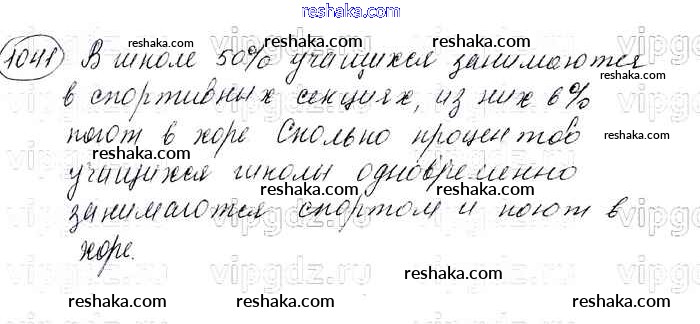 reshaka.com
1041 В школе 50% учащихся занимаются
reshaka.com reshaka.com reshaka.com
в спортивных секциях, из них 6%
поют в хоре Сколько процентов
reshaka.com reshaka.com reshaka.com
учащихся школы одновременно
reshaka.com reshaka.com reshaka.com
занимаются спортом и поют в
vipgdz.ru vipgdz.ru vipgdz.ru
хоре.
reshaka.com reshaka.com
reshaka.com reshaka.com reshaka.com